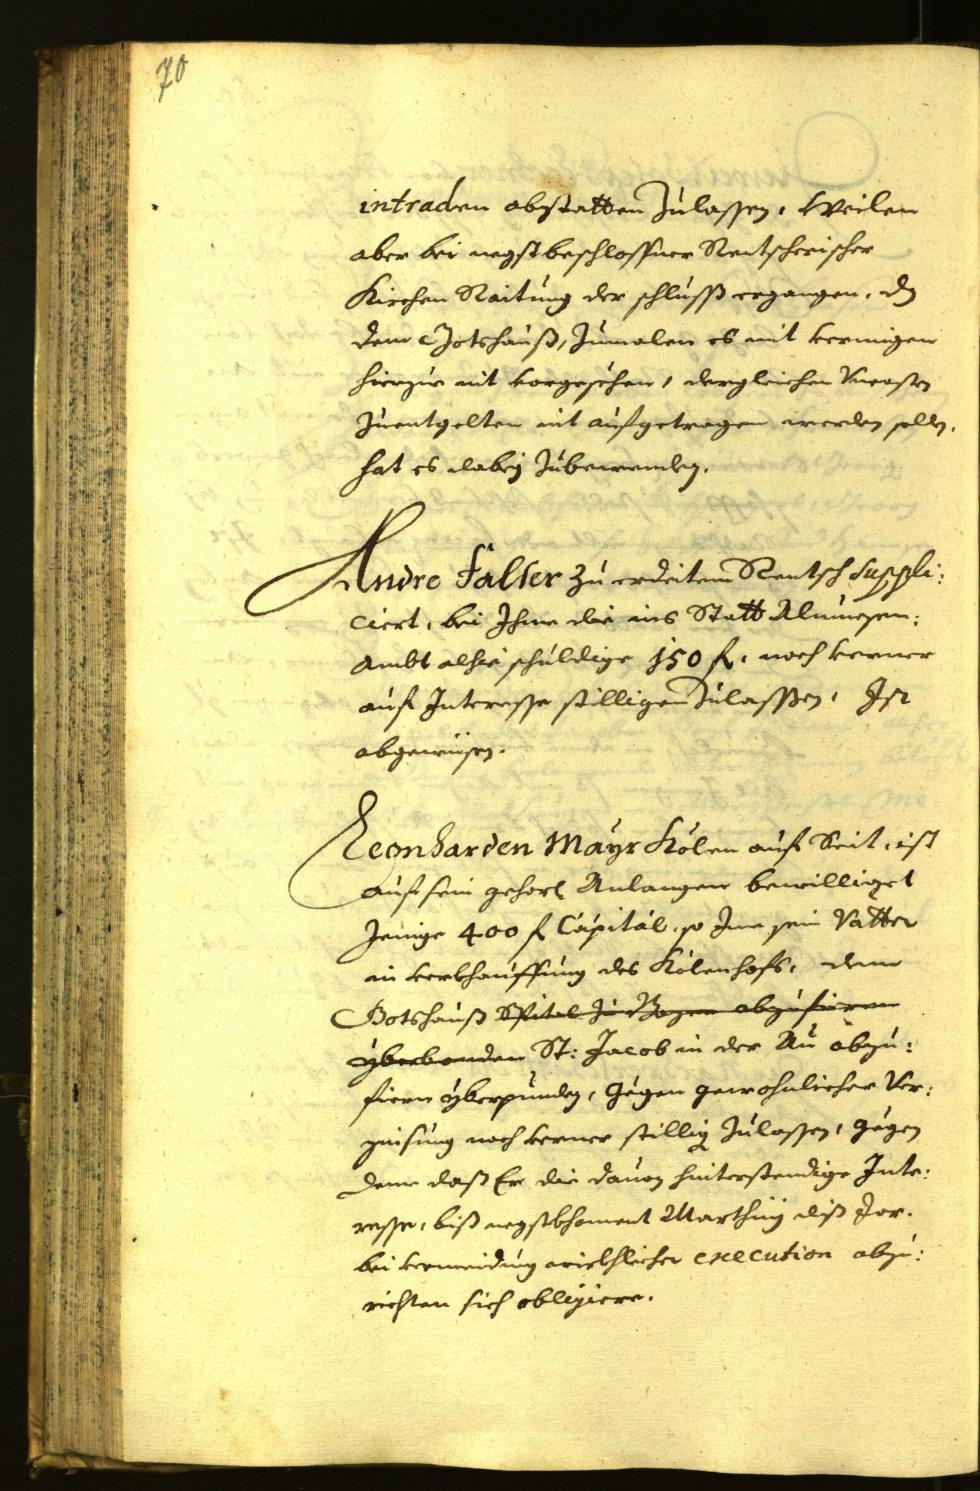 70
intraden abstatten zulassen, Weilen
aber bei negst beschlossner Rentscherischer
Kirchen Raitung der schluss ergangen, dz
dem Gotshauß, zumalen es mit kermigen
hierzue nit vorgesehen, dergleichen Vncosten
zuentgelten nit aufgetragen werden solle,
hat es dabej zubewenden.
Andre Falser zu erdeitem Rentsch suppli:
ciert, bei Ihme die ins Statt Almuesen:
Ambt alhie schuldige 150 f. noch verner
auf Interesse stilligen zulasßen, Ist
abgewisen.
Leonharden Mayr Kölen auf Seit, ist
auf sein gehors. Anlangen bewilliget
Jenige 400 f Capital, so Ime sein Vatter
in verkhauffung des Kölenhofs, dem
Gotshauß Spital zu Bozen abzufieren
yberbonden St: Jacob in der Au abzu:
fiern yberpunden, gegen gewohnlicher Ver:
zinsung noch verner stillig zulassen, gegen
deme daß Er die dauon hinterstendige Inte:
resse, biß negstkhoment Marthinj diß Jar.
bei vermeidung wirkhlicher execution abzu:
richten sich obligiere.